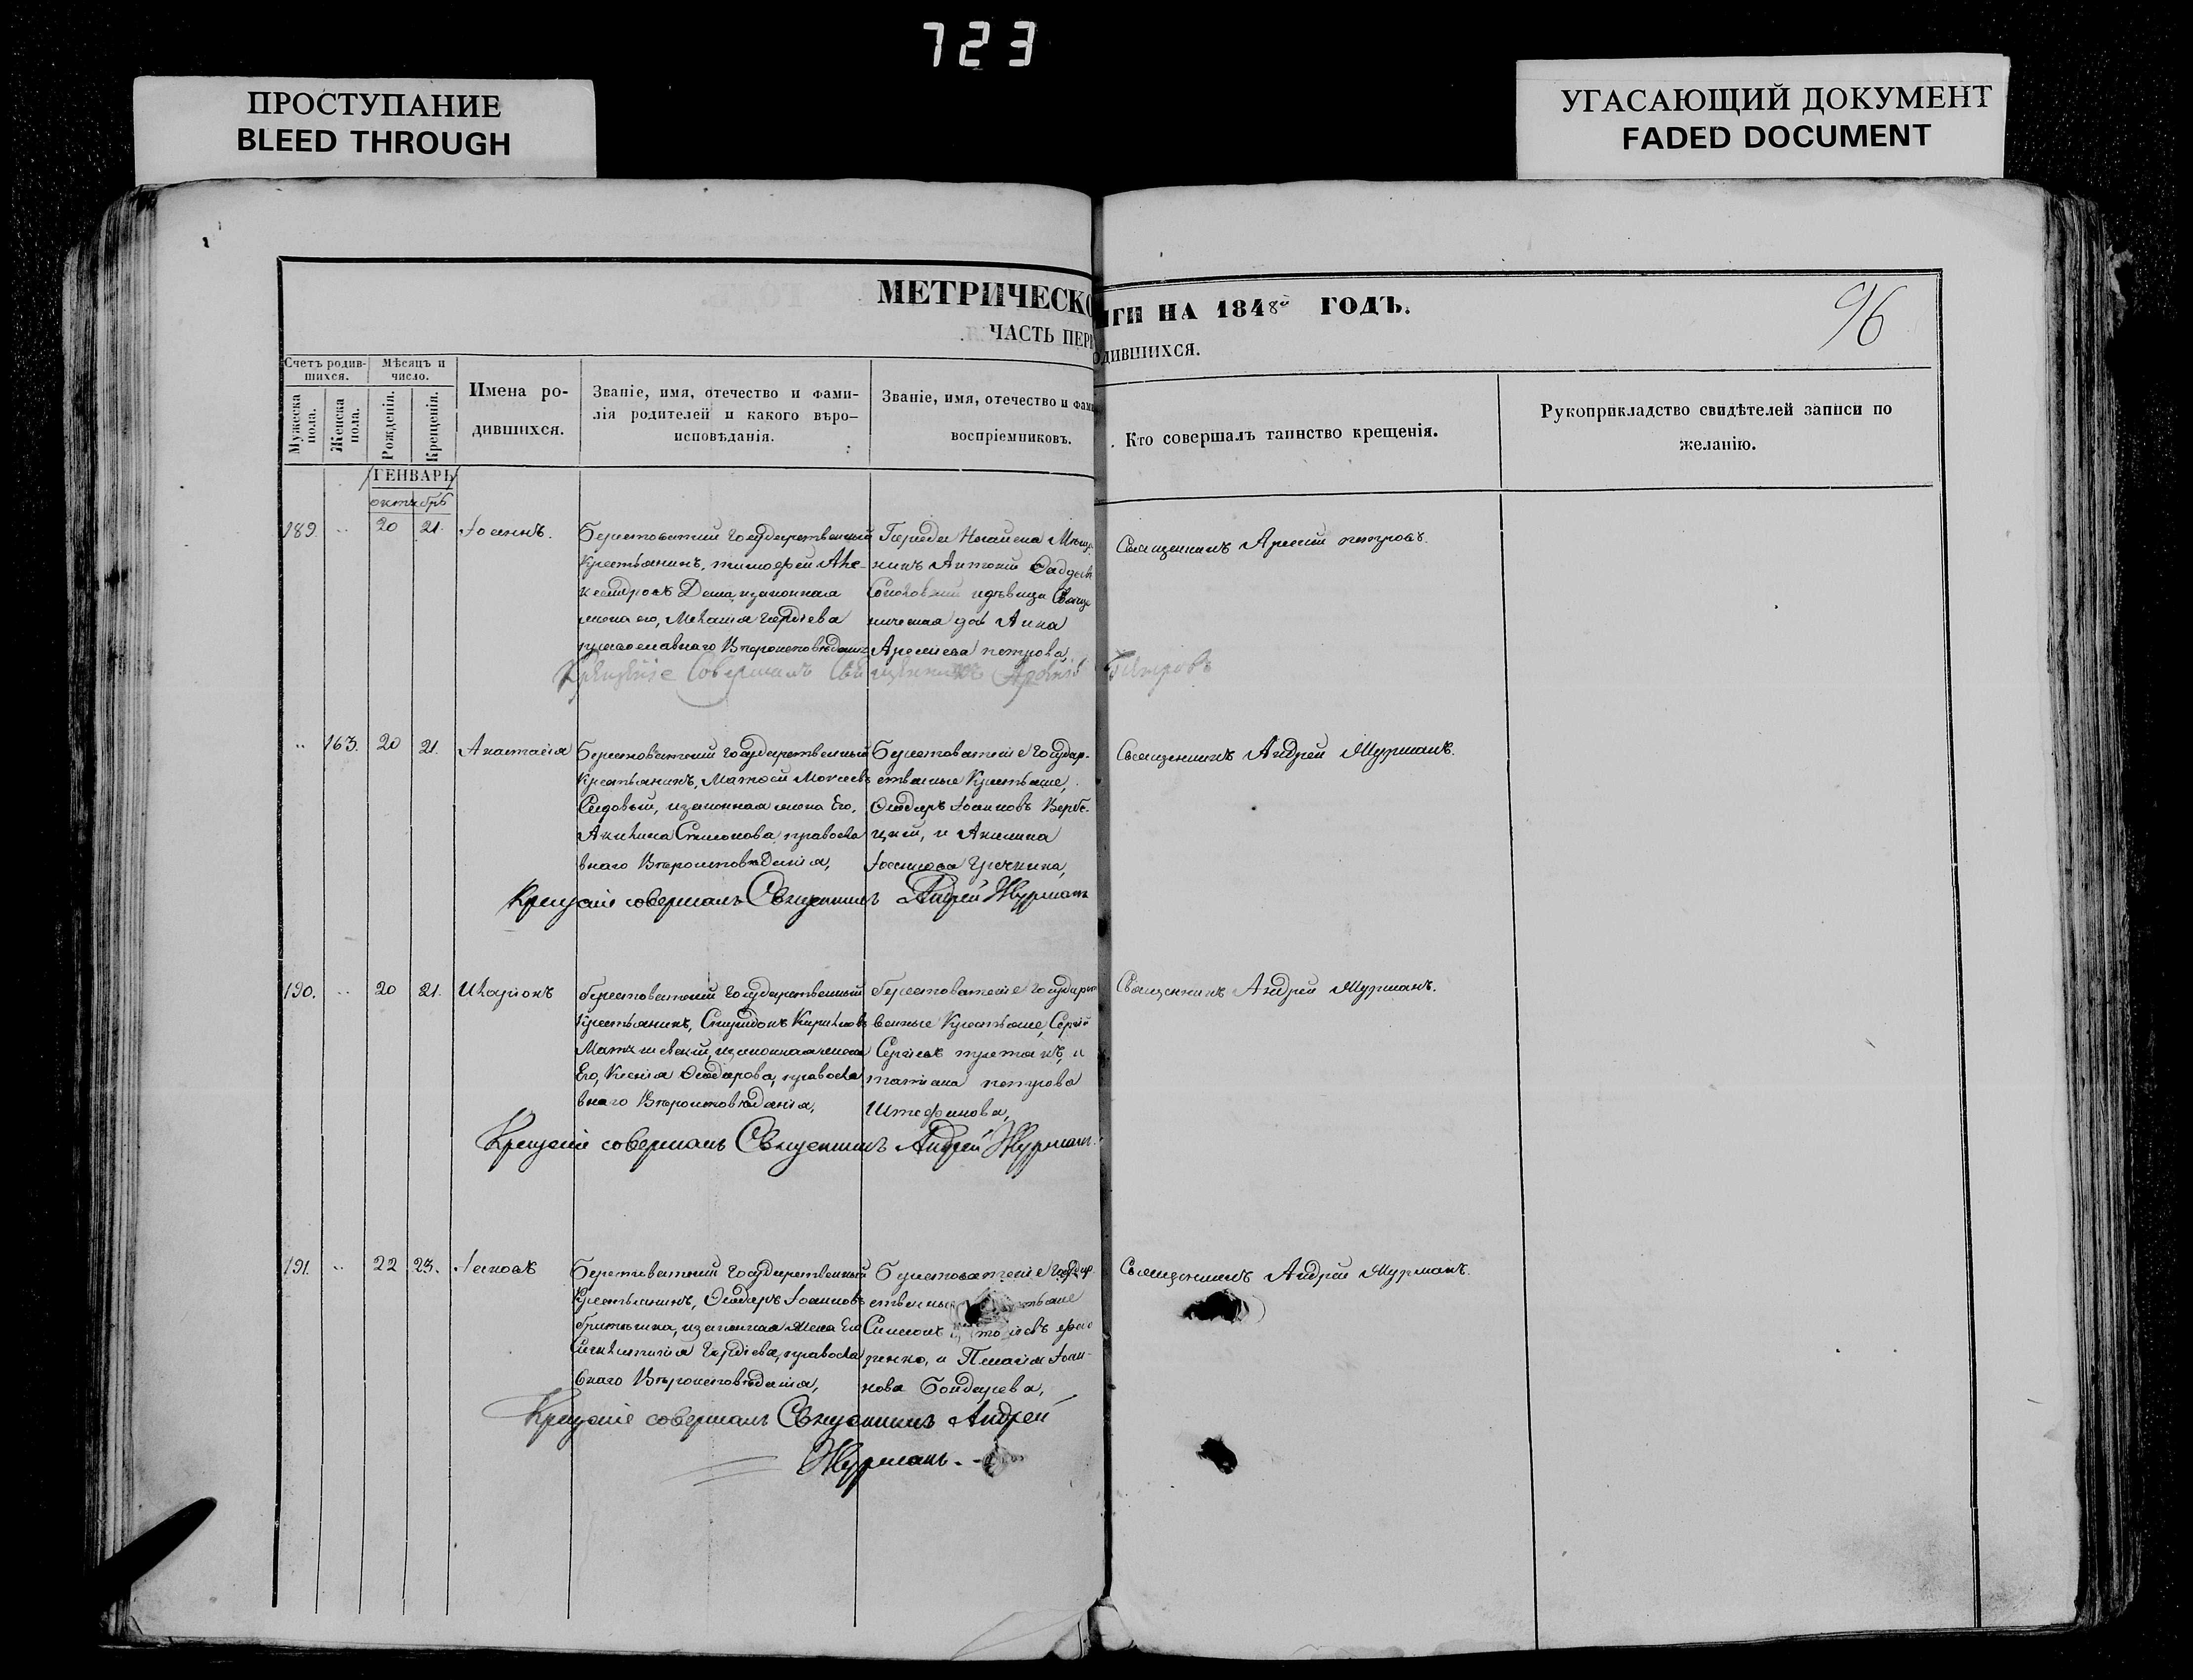 723
ПРОСТУПАНИЕ
BLEED THROUGH
УГАСАЮЩИЙ ДОКУМЕНТ
FADED DOCUMENT
МЕТРИЧЕСКО
ГИ НА 1848й ГОДЪ.
96
ЧАСТЬ ПЕР
ОДИВШИХСЯ.
Счетъ родив-
шихся.
Мужеска пола.
Женска пола.
Мѣсяцъ и
число.
Рожденія.
Крещенія.
Имена ро-
дившихся.
Званіе, имя, отечество и фами-
лія родителей и какого вѣро-
исповѣданія.
Званіе, имя, отечество и фам
воспріемниковъ.
Кто совершалъ таинство крещенія.
Рукоприкладство свидѣтелей записи по
желанію.
ГЕНВАРЬ
октябрь
189. 20 21. Іоаннъ.
Берестоватский государственный
Крестьянинъ, тимофей Але-
законная
жена его, Гордѣева
православнаго Вѣроисповѣданія
Города Ногайска
никъ Антоній
Анна
Арсеніева петрова,
Священникъ Арсеній петровъ.
Крещеніе Совершалъ Священникъ Арсеній Петровъ
163. 20 21. Анастасія
Берестоватский государственный
Крестьянинъ, Матөей Моисеевъ
Седовый, изаконная жена Его,
Акилина Симонова, правосла
внаго Вѣроисповѣданія,
Берестоватскіе государ-
ственные Крестьяне,
Өеодоръ Іоанновъ Верби-
цкій, и Акилина
Іоаннова
Священникъ Андрей Журманъ.
Крещеніе совершалъ Священникъ Андрей Журманъ
190. 20 21. Иларіонъ
берестоватский государственный
Крестьянинъ, Спиридонъ Кириловъ
изаконная жена
Его, Ксенія Өеодорова, правосла
внаго Вѣроисповѣданія,
берестоватскіе государст
венные Крестьяне, Сергій
Сергіевъ третякъ, и
татіана петрова
Штефанова,
Священникъ Андрей Журманъ.
Крещеніе совершалъ Священникъ Андрей Журманъ.
191. 22 23. Іаковъ
Берестоватский государственный
Крестьянинъ, Өеодоръ Іоанновъ
изаконная жена Его
Гордѣева, правосла
внаго Вѣроисповѣданія,
Берестоватскіе государ-
ственны
Симеонъ
ренко, и Пелагія Іоан-
нова Бондарева,
Священникъ Андрей Журманъ.
Крещеніе совершалъ Священникъ Андрей
Журманъ.